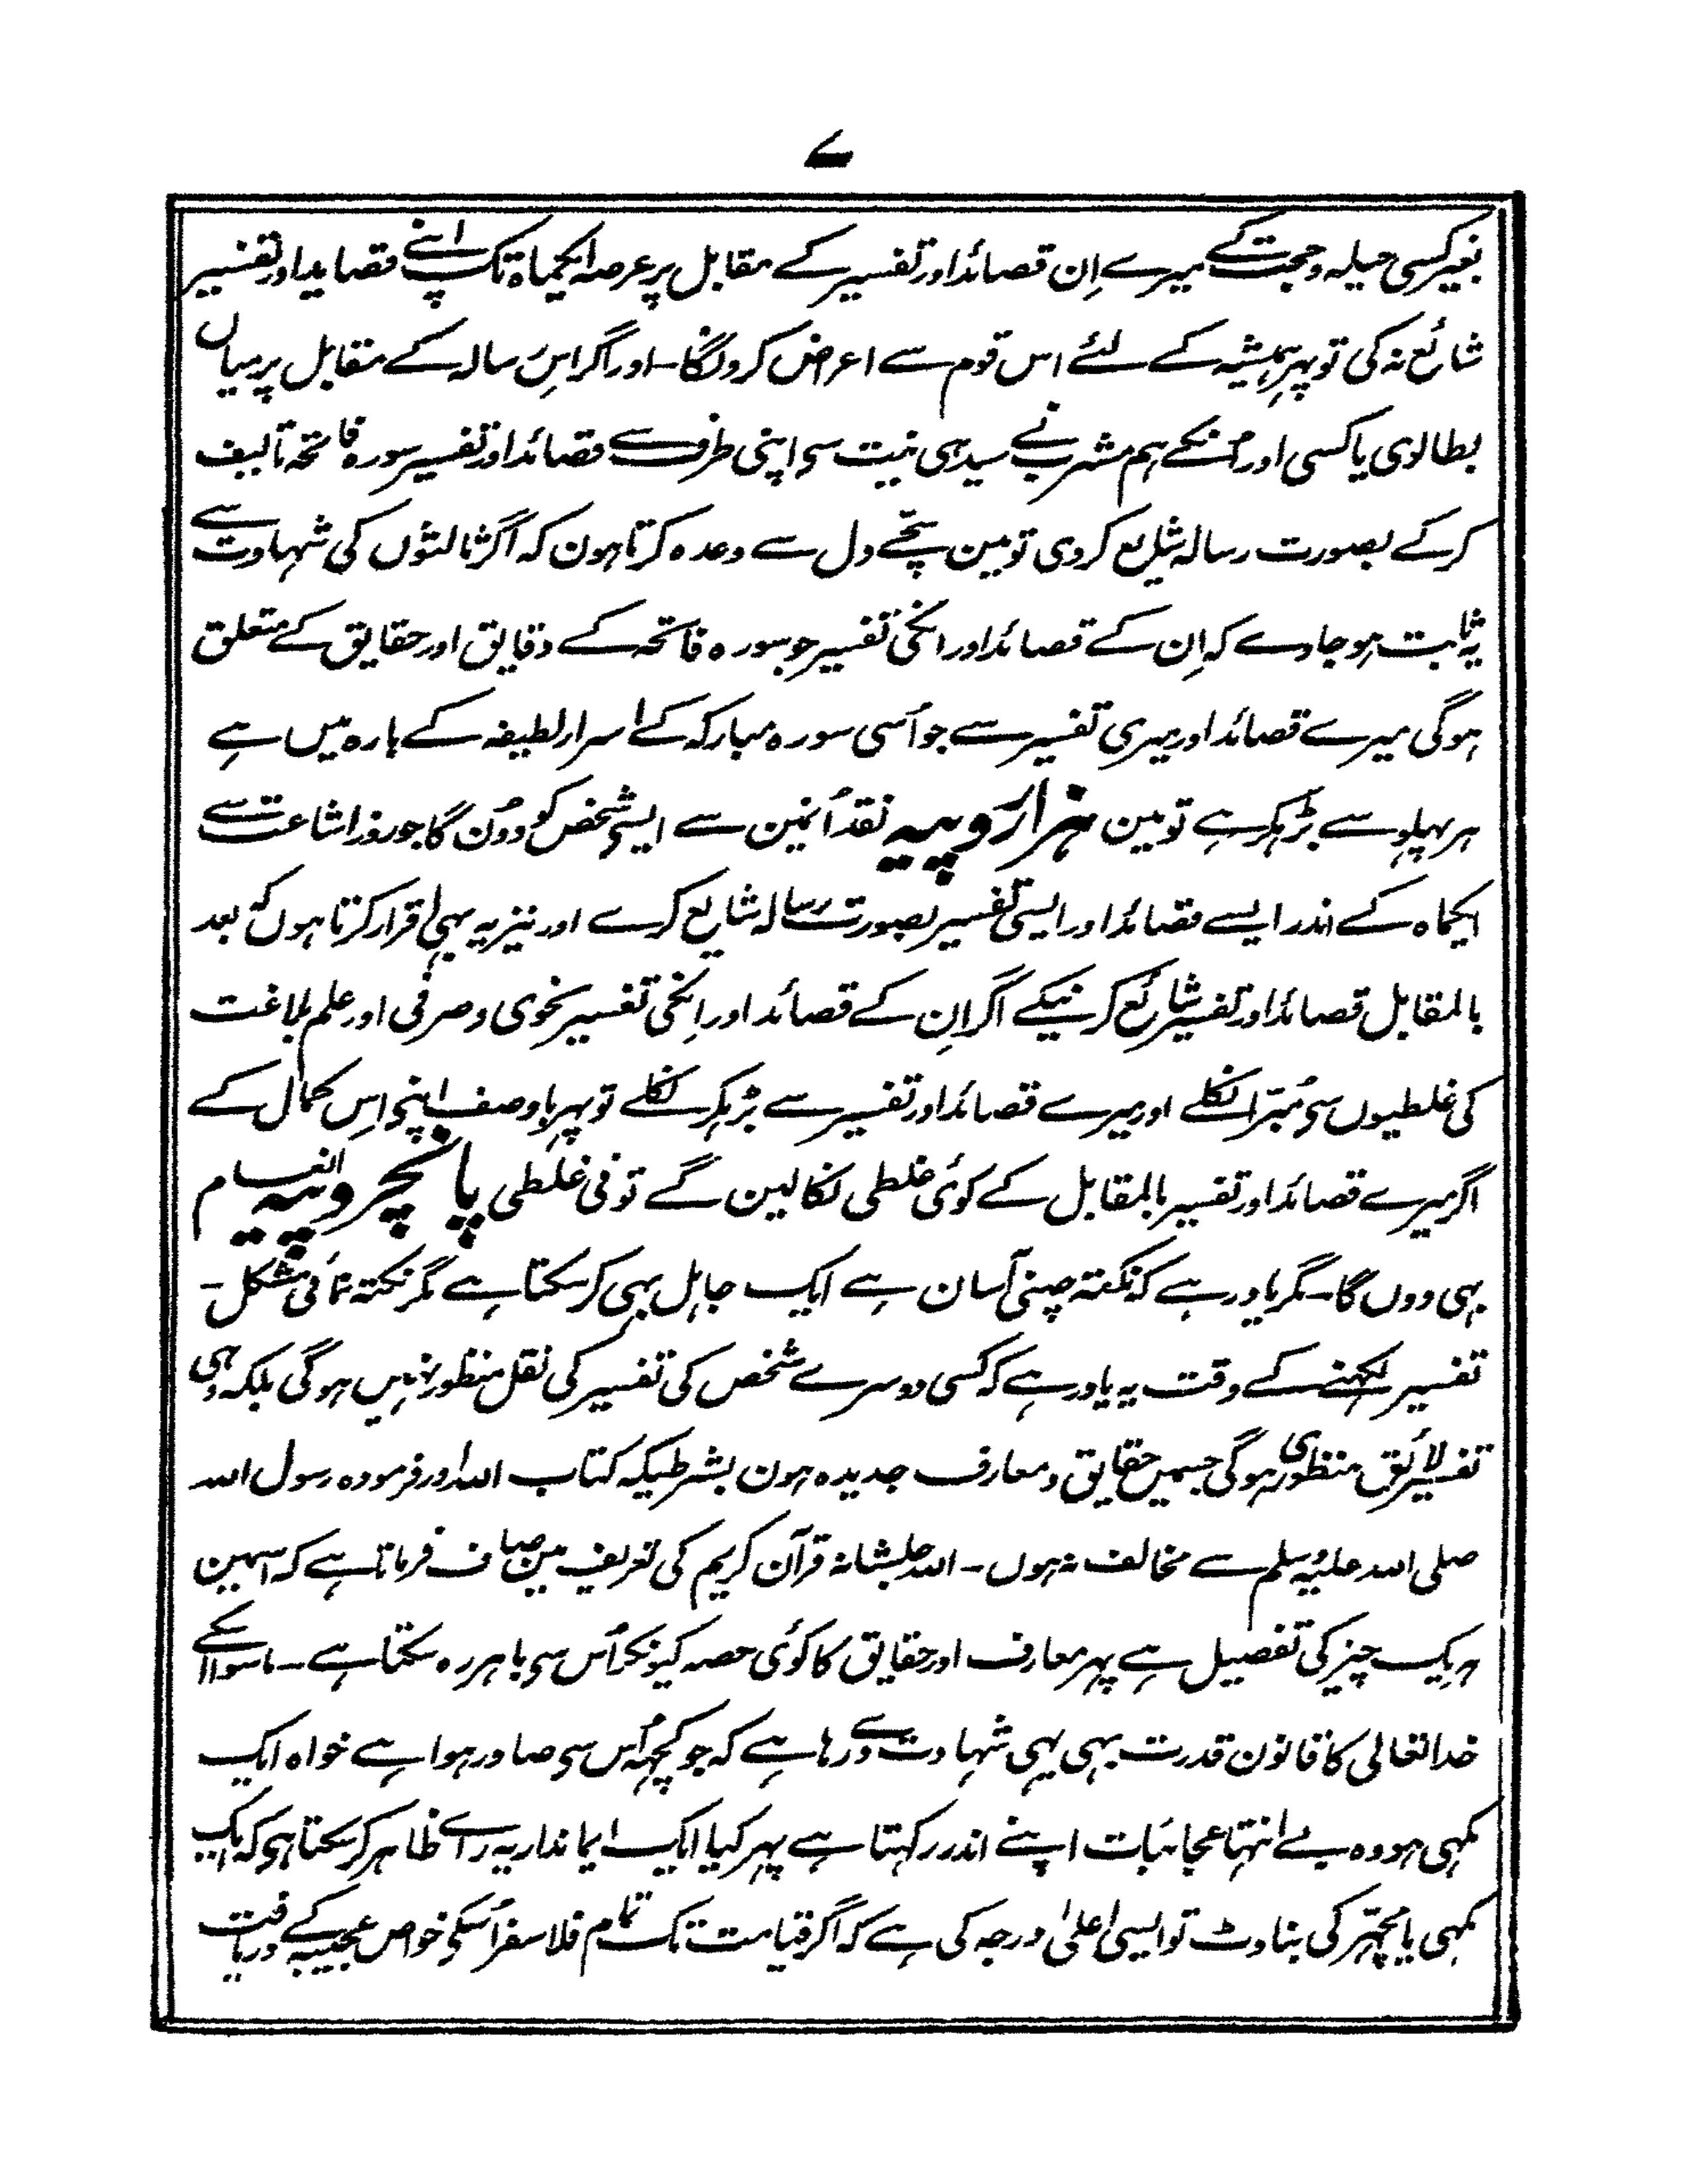 ۷
بغیر کسی حیلہ و حجت کے میرے اِن قصائد اور تفسیر کے مقابل پر عرصہ ایکماہ تک اپنے قصاید اور تفسیر
شائع نہ کی تو پہر ہمیشہ کے لئے اس قوم سے اعرض کرونگا۔ اور اگر اس رسالہ کے مقابل پر میاں
بطالوی یا کسی اور اُنکے ہم مشرب نے سیدہی نیت سی اپنی طرف سے قصائد اور تفسیر سورہ فاتحہ تالیف
کر کے بصورت رسالہ شایع کر دی تو مین سچّے دل سے وعدہ کرتا ہون کہ اگر ثالثوں کی شہادت سے
یہ ثابت ہو جاوے کہ اِن کے قصائد اور انکی تفسیر جو سورہ فاتحہ کے دقایق اور حقایق کے متعلق
ہوگی میرے قصائد اور میری تفسیر سے جو اُسی سورہ مبارکہ کے اسرار لطیفہ کے بارہ میں ہے
ہر پہلو سے بڑہکر ہے تو مین ہزار روپیہ نقد اُنمین سے ایسی شخص کو دوُن گا جو روز اشاعت سے
ایکماہ کے اندر ایسے قصائد اور ایسی تفسیر بصورت رسالہ شایع کرے اور نیز یہ بہی اقرار کرتا ہوں کہ بعد
بالمقابل قصائد اور تفسیر شائع کرنیکے اگر اِن کے قصائد اور اِنکی تفسیر نحوی و صرفی اور علم بلاغت
کی غلطیوں سی مُبرّا نکلے اور میرے قصائد اور تفسیر سے بڑہکر نکلے تو پہر باوصف اپنے اِس کمال کے
اگر میرے قصائد اور تفسیر بالمقابل کے کوئی غلطی نکالین گے تو فی غلطی پانچ روپیہ انعام
بہی دوں گا۔ مگر یاد رہے کہ نکتہ چینی آسان ہے ایک جاہل بہی کر سکتا ہے مگر نکتہ نمائی مشکل۔
تفسیر لکہنے کے وقت یہ یاد رہے کہ کسی دوسرے شخص کی تفسیر کی نقل منظور نہیں ہوگی بلکہ وہی
تفسیر لائق منظوری ہوگی جسمیں حقایق و معارف جدیدہ ہون بشرطیکہ کتاب اللہ اور فرمودہ رسول اللہ
صلی اللہ علیہ وسلم سے مخالف نہ ہوں۔ اللہ جلشانہ قرآن کریم کی تعریف مین صاف فرماتا ہے کہ اسمین
ہریک چیز کی تفصیل ہے پہر معارف اور حقایق کا کوئی حصہ کیونکر اُس سی باہر رہ سکتا ہے۔ ماسوا اسکے
خدا تعالی کا قانون قدرت بہی یہی شہادت دے رہا ہے کہ جو کچھ اُس سی صادر ہوا ہے خواہ ایک
مکہی ہو وہ بے انتہا عجائبات اپنے اندر رکہتا ہے پہر کیا ایک ایماندار یہ رائے ظاہر کر سکتا ہی کہ ایک
مکہی یا مچھر کی بناوٹ تو ایسی اعلیٰ درجہ کی ہے کہ اگر قیامت تک تمام فلاسفر اُسکی خواص عجیبہ کے دریافت